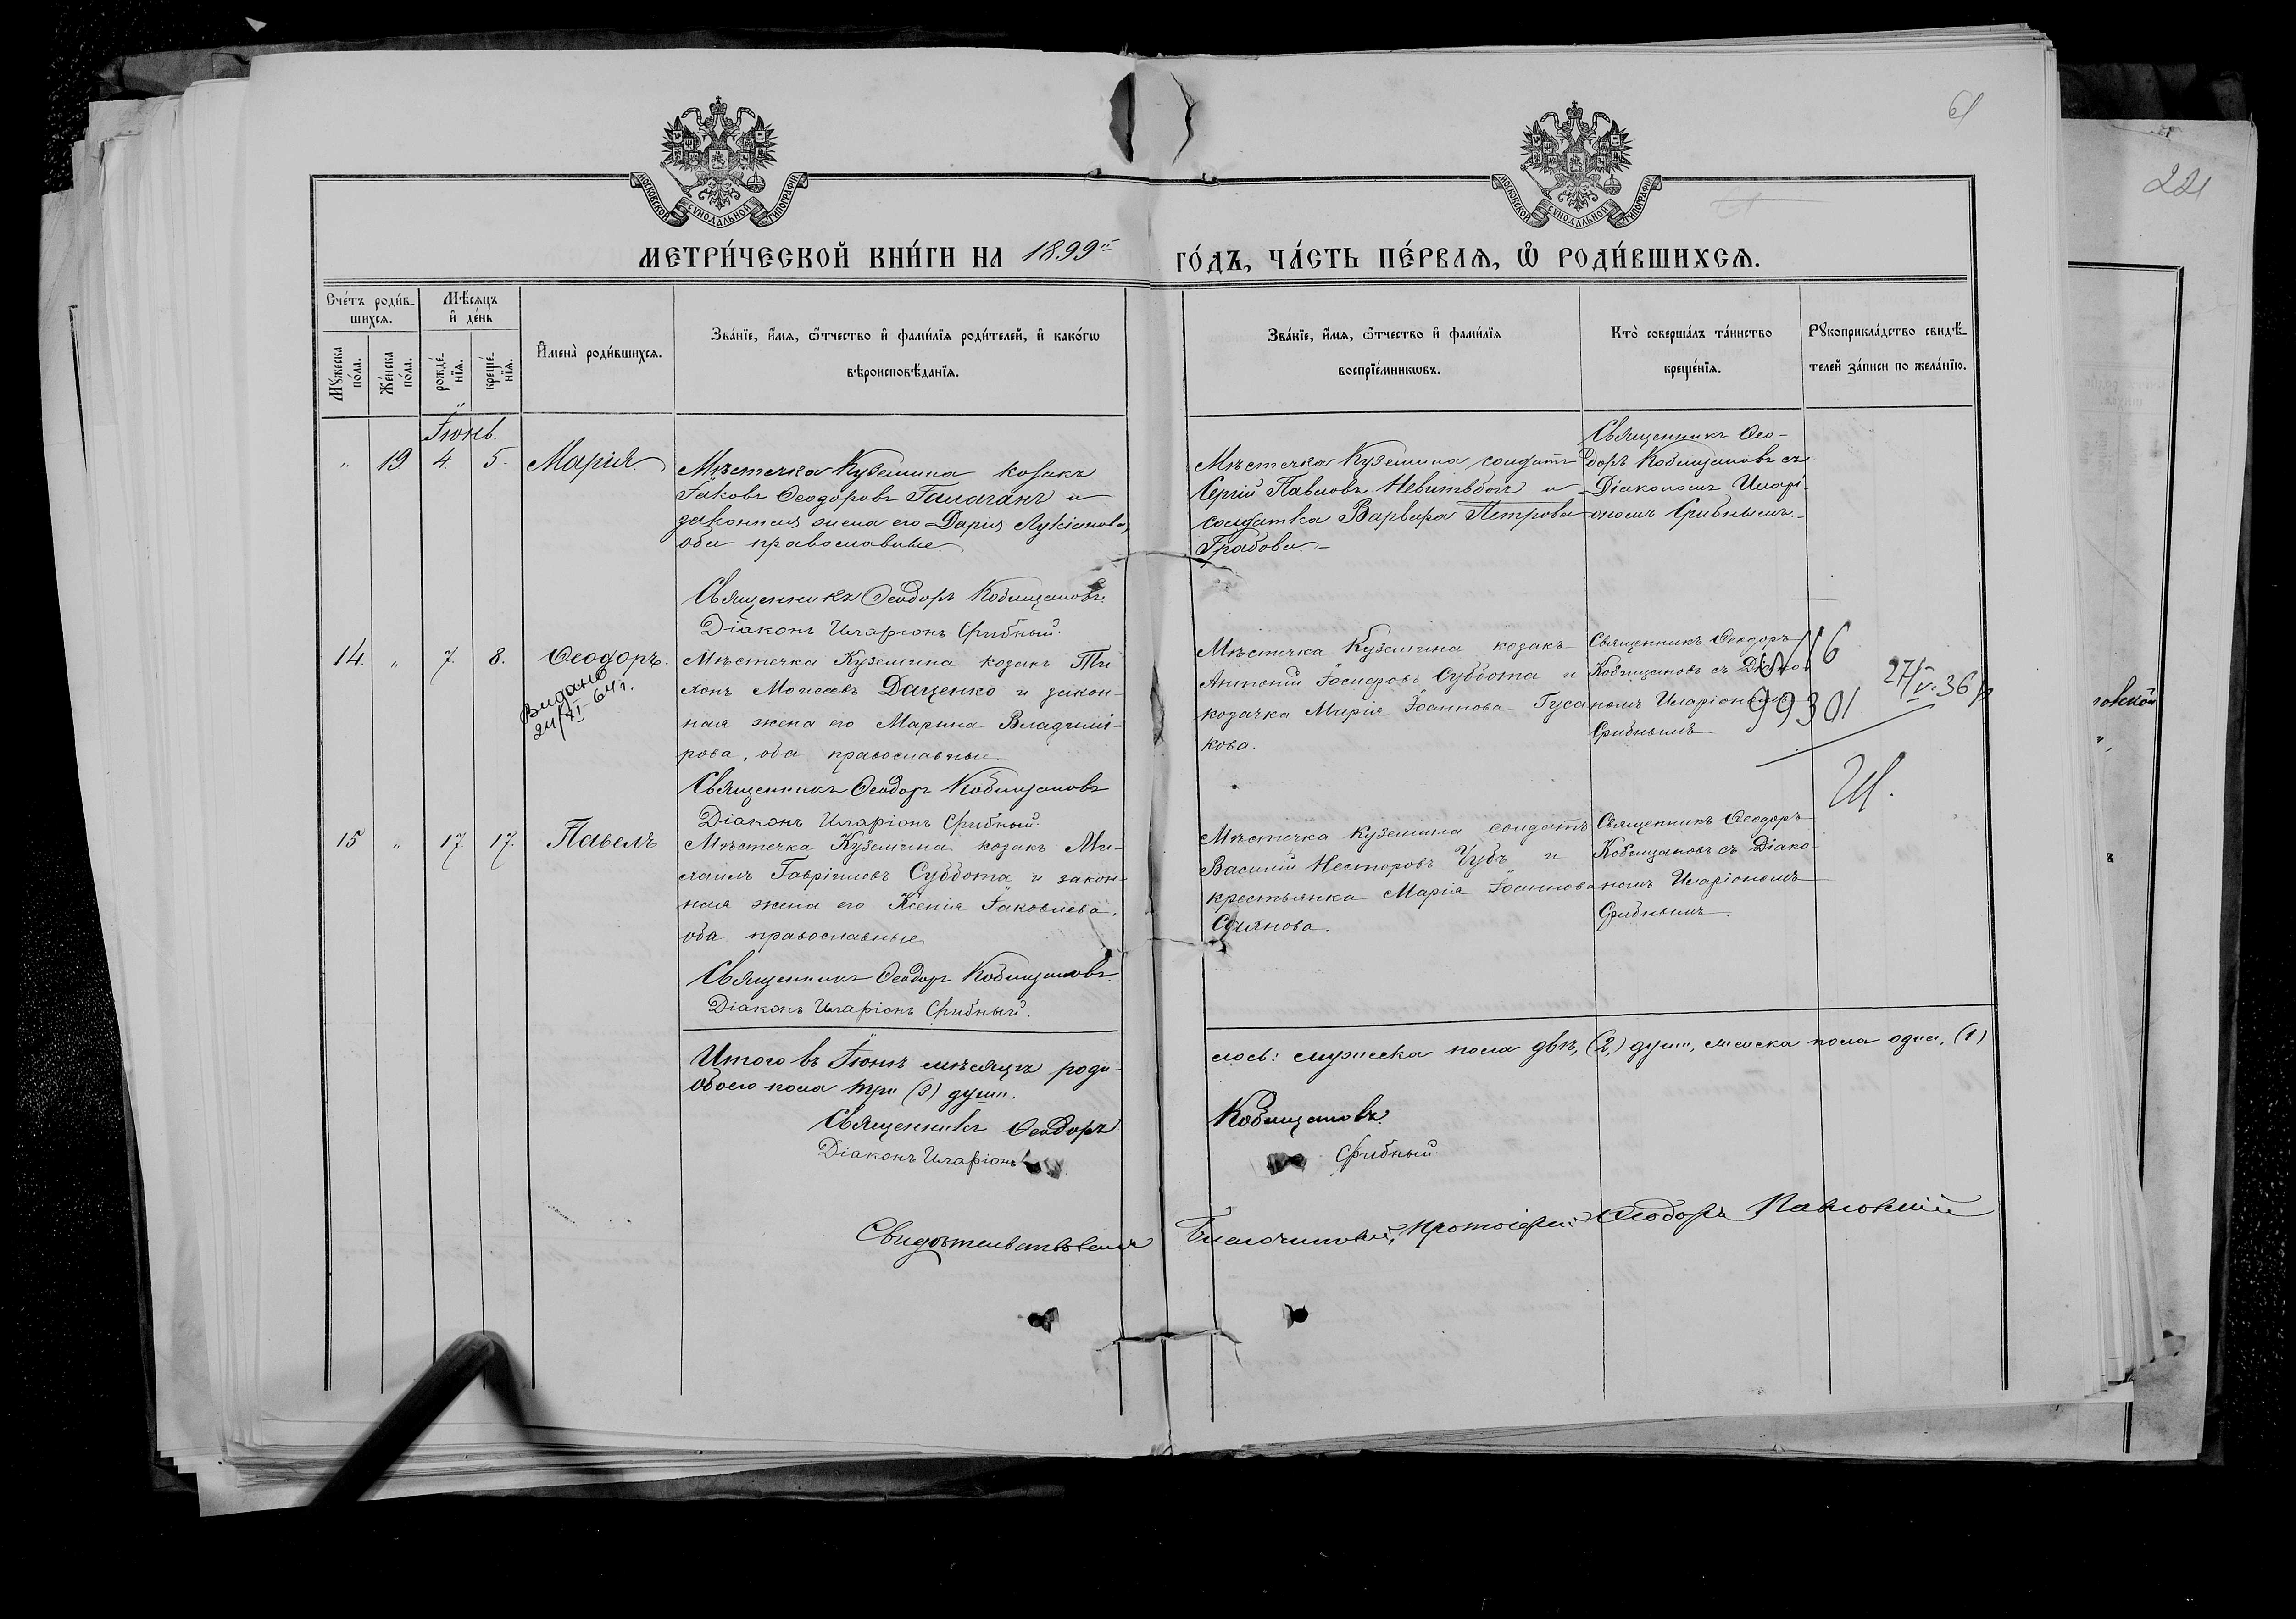 61
221
МОСКОВСКОЙ СѴНОДАЛЬНОЙ ТИПОГРАФІИ
МОСКОВСКОЙ СѴНОДАЛЬНОЙ ТИПОГРАФІИ
МЕТРИ́ЧЕСКОЙ КНИ́ГИ НА 1899й ГО́ДЪ, ЧА́СТЬ ПЕ́РВАЯ, Ѡ РОДИ́ВШИХСЯ.
Сче́тъ роди́в-
шихся.
Мѣ́сяцъ
и҆ де́нь
Мꙋ́жеска по́ла.
Же́нска по́ла.
рожде́-
нїѧ.
креще́-
нїѧ.
И҆мена̀ роди́вшихся.
Зва́нїе, и҆́мя, ѻ҆́тчество и҆ фами́лїя роди́телей, и҆ како́гѡ
вѣроисповѣ́данїя.
Зва́нїе, и҆́мя, ѻ҆́тчество и҆ фами́лїя
воспрїе́мникѡвъ.
Кто̀ соверша́лъ та́инство
креще́нїя.
Рꙋкоприкла́дство свидѣ́-
телей за́писи по жела́нїю.
Іюнь.
" 19 4. 5. Марія.
Мѣстечка Куземина козакъ
Іаковъ Ѳеодоровъ Галаганъ и
законная жена его Дарія Лукіанова,
оба православные.
Священникъ Ѳеодоръ Кобищановъ
Діаконъ Иларіонъ Срибный.
Мѣстечка Куземина солдатъ
Сергій Павловъ и
солдатка Варвара Петрова
Грабова.
Священникъ Ѳео-
доръ Кобищановъ съ
Діакономъ Иларі-
ономъ Срибнымъ.
14. " 7. 8. Ѳеодоръ.
Видано
24/XI 64 г.
Мѣстечка Куземина козакъ Ти
хонъ Моисеевъ Даценко и закон-
ная жена его Марина Владимі-
рова, оба православные.
Священникъ Ѳеодоръ Кобищановъ
Діаконъ Иларіонъ Срибный.
Мѣстечка Куземина козакъ
Антоній Іосифовъ Суббота и
козачка Марія Іоаннова Гуса
кова.
Священникъ Ѳеодоръ
Кобищановъ съ Діако
номъ Иларіономъ
Срибнымъ
99301
27/V 36 р
15 " 17. 17. Павелъ
Мѣстечка Куземина козакъ Ми-
хаилъ Гавріиловъ Суббота и закон-
ная жена его Ксенія Іаковлева,
оба православные
Священникъ Ѳеодоръ Кобищановъ.
Діаконъ Иларіонъ Срибный.
Мѣстечка Куземина солдатъ
Василій Несторовъ Чубъ и
крестьянка Марія Іоаннова
Священникъ Ѳеодоръ
Кобищановъ съ Діако-
номъ Иларіономъ
Срибнымъ.
Итого въ Іюнѣ мѣсяцѣ роди-
лось: мужеска пола двѣ, (2,) души, женска пола одна, (1)
обоего пола три (3) души.
Священникъ Ѳеодоръ Кобищановъ.
Діаконъ Иларіонъ Срибный.
Благочинный, Протоіерей Ѳеодоръ